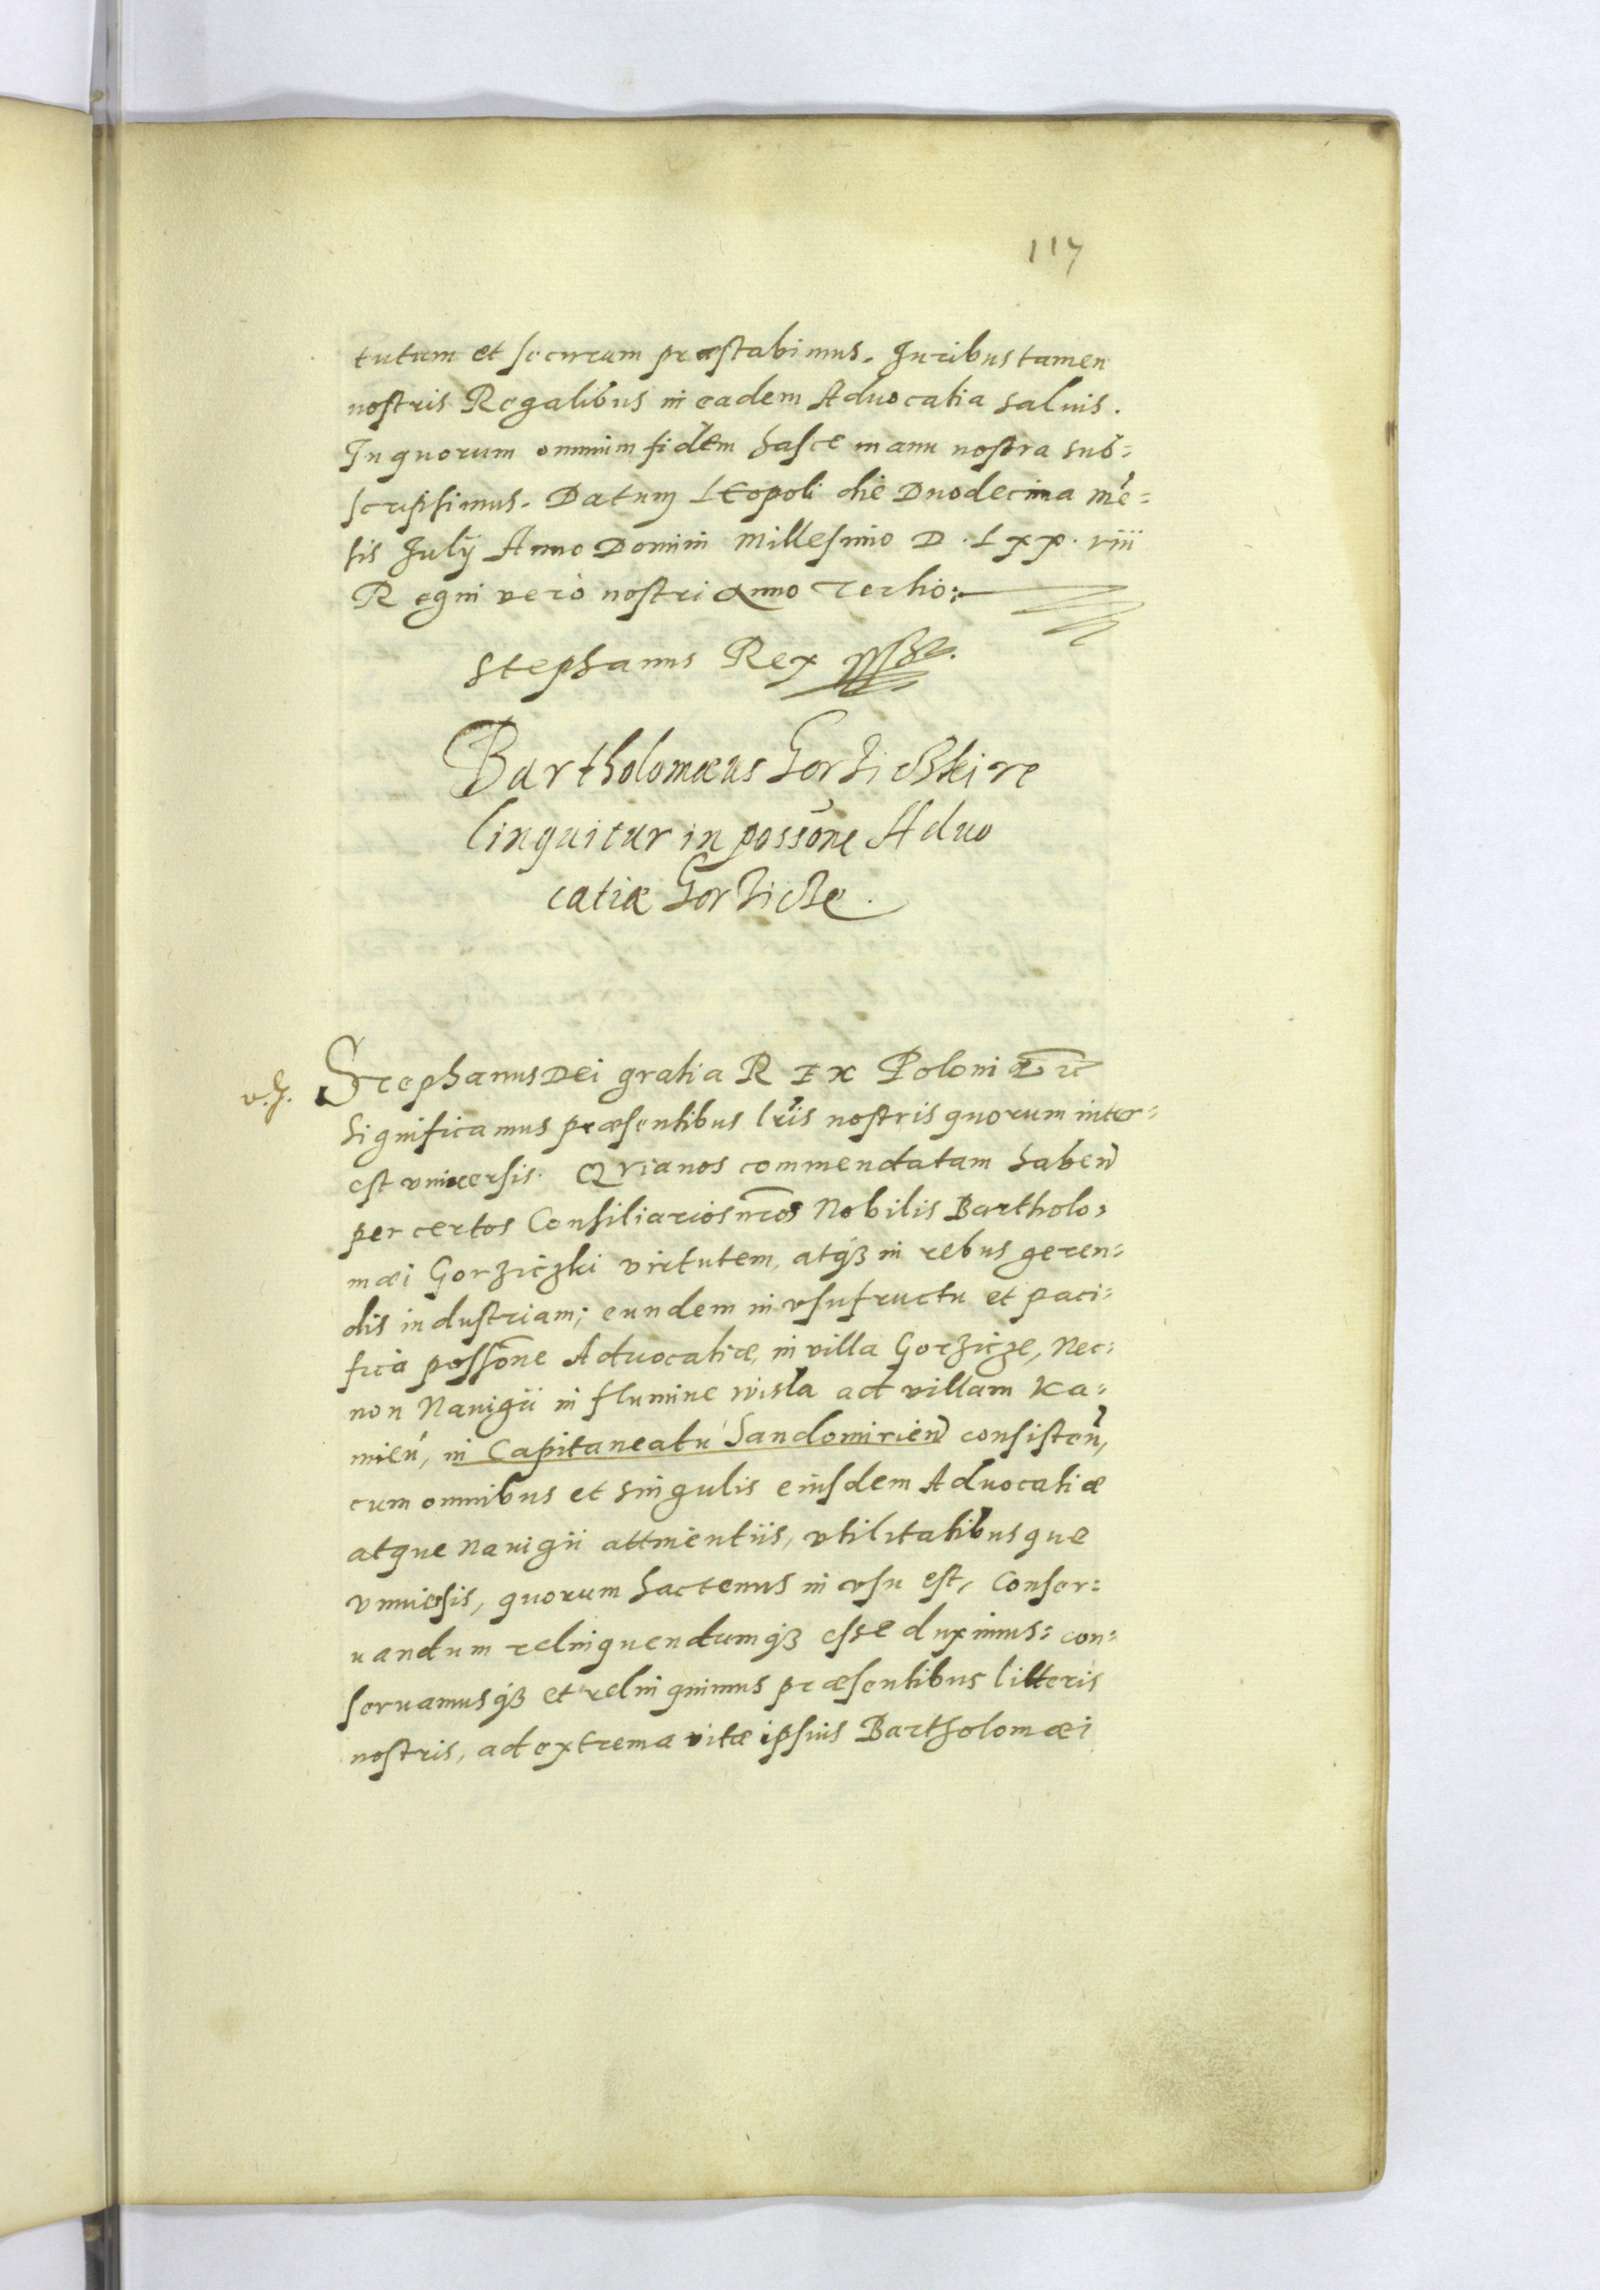 117
tutum et securum præstabimus. Juribus tamen
nostris Regalibus in eadem Aduocatia saluis.
In quorum omnium fidem hasce manu nostra sub=
scripsimus. Datum LEopoli die Duodecima mẽ=
sis Julij Anno Domini Millesimo D. Lxx. viii
Regni verò nostri Anno Tertio:
Stephanus Rex
Bartholomæus Gorziczki re
linquitur in possõne Aduo
catiæ Gorzicze.
v. J. Stephanus Dei gratia REX Poloniæ
Significamus præsentibus lris nostris quorum inter=
est vniuersis. Qvia nos commendatam haben
per certos Consiliarios nros Nobilis Bartholo=
mæi Gorziczki virtutem, atq3 in rebus geren=
dis industriam; eundem in vsufructu et paci=
fica possõne Aduocatiæ, in villa Gorzicze, Nec=
non Nauigii in flumine wisła ad villam Ka=
mień, in Capitaneatu Sandomirien consisten,
cum omnibus et singulis eiusdem Aduocatiæ
atque Nauigii attinentiis, vtilitatibusque
vniuersis, quorum hactenus in vsu est, Conser=
uandum relinquendumq3 esse duximus: con=
seruamusq3 et relinquimus præsentibus litteris
nostris, ad extrema vitæ ipsius Bartholomæi